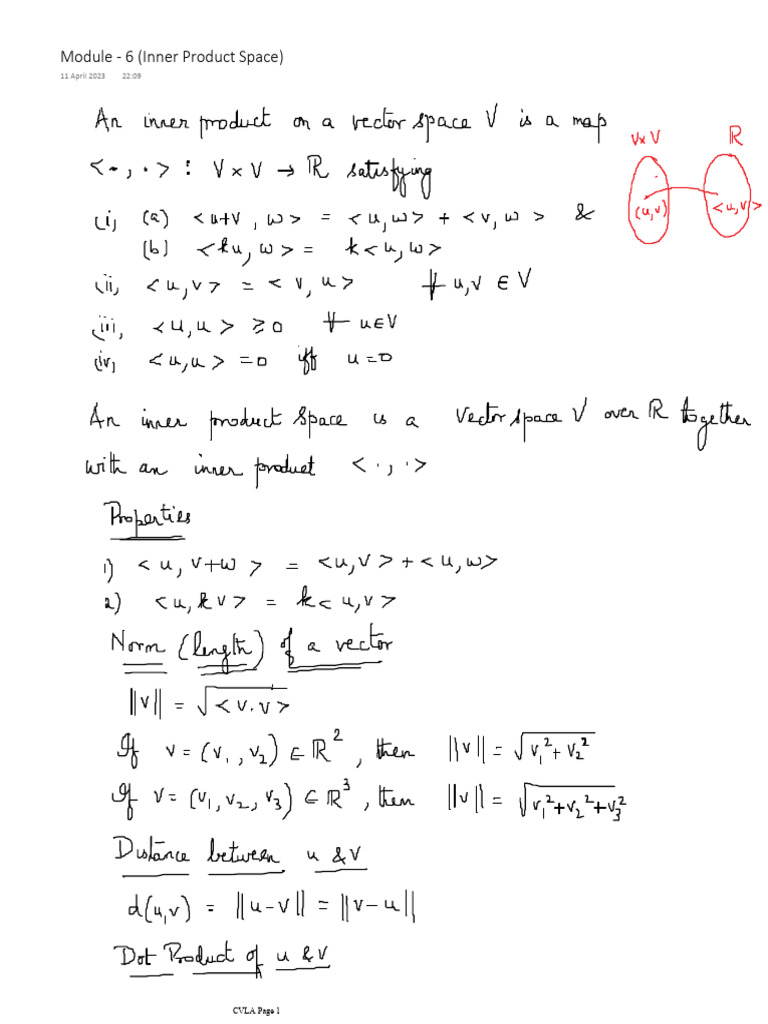 Module - 6 (Inner Product Space)
11 April 2023 22:09
An inner product on a vector space V is a map
<·, ·> : V×V → ℝ satisfying
(i) (a) <u+v, w> = <u, w> + <v, w> &
(b) <ku, w> = k<u, w>
(ii) <u, v> = <v, u> ∀ u, v ∈ V
(iii) <u, u> ≥ 0 ∀ u ∈ V
(iv) <u, u> = 0 iff u = 0
V×V ℝ
(u, v) <u, v>
An inner product space is a vector space V over ℝ together
with an inner product <·, ·>
Properties
1) <u, v+w> = <u, v> + <u, w>
2) <u, kv> = k<u, v>
Norm (length) of a vector
||v|| = √<v.v>
If v = (v₁, v₂) ∈ ℝ², then ||v|| = √v₁² + v₂²
If v = (v₁, v₂, v₃) ∈ ℝ³, then ||v|| = √v₁² + v₂² + v₃²
Distance between u & v
d(u, v) = ||u-v|| = ||v-u||
Dot Product of u & v
CVLA Page 1